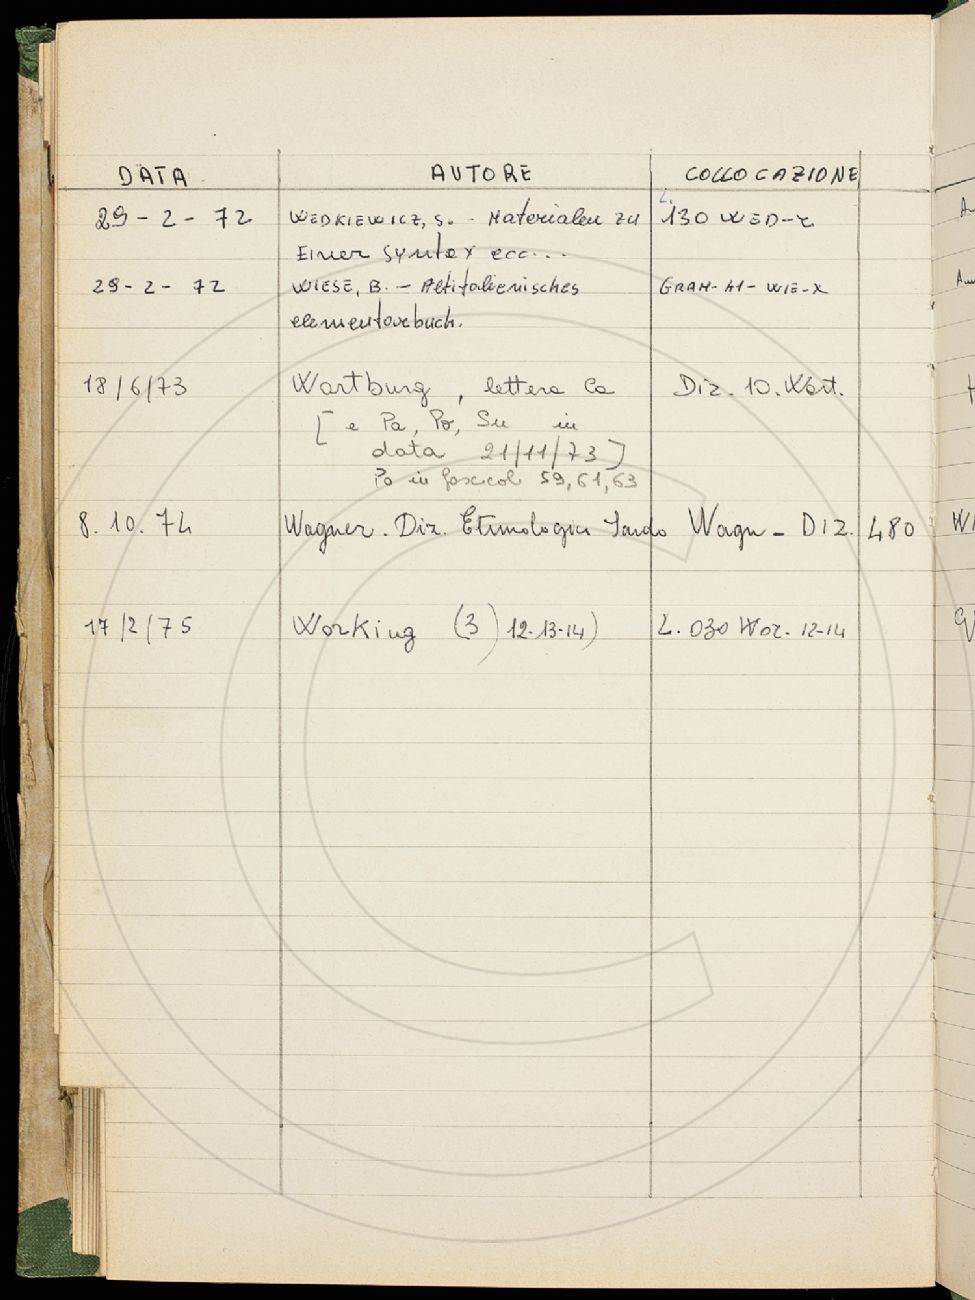 DATA AUTORE COLLOCAZIONE
29-2-72 WEDKIEWICZ, S. - Materialen zu L. 130 WED-
Einer Syntax ecc...
29-2-72 WIESE, B. - Altitalienisches GRAM- WIE-
elementarebuch.
18/6/73 Wartburg, lettera Ca Diz. 10. Wart.
[e Pa, Po, Su in
data 21/11/73]
Po in fascicol 59, 61, 63
8.10.74 Wagner. Diz. Etimologico Sardo Wagn - DIZ. 480
17/2/75 Working (3) 12-13-14) L. 030 Wor. 12-14